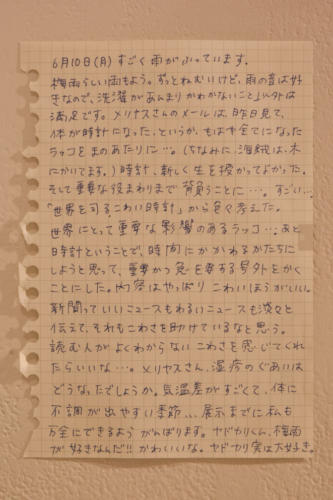 6月10日(月) すごく雨がふっています。
梅雨らしい雨もよう。ずっとねむいけど、雨の音は好
きなので、洗濯があんまりかわかないこと以外は
満足です。メリヤスさんのメールは、昨日見て、
体が時計になった、というか、もはや全てになった
ラッコをまのあたりに…。(ちなみに、海獺は、木
にかいてます。) 時計、新しく生を授かってよかった。
そして重要な役まわりまで背負うことに…。すごい…。
「世界を司るこわい時計」から色々考えた。
世界にとって重要な影響のあるラッコ…。あと
時計ということで、時間にかかわるかたちに
しようと思って、重要かつ急を要する号外をかく
ことにした。内容はやっぱりこわいほうがいい。
新聞っていいニュースもわるいニュースも淡々と
伝えて、それもこわさを助けているなと思う。
読む人がよくわからないこわさを感じてくれ
たらいいな…。メリヤスさん、湿疹のぐあいは
どうなったでしょうか。気温差がすごくて、体に
不調が出やすい季節…、展示までに私も
万全にできるようがんばります。ヤドカリくん、梅雨
が好きなんだ!! かわいいな。ヤドカリ実は大好き。